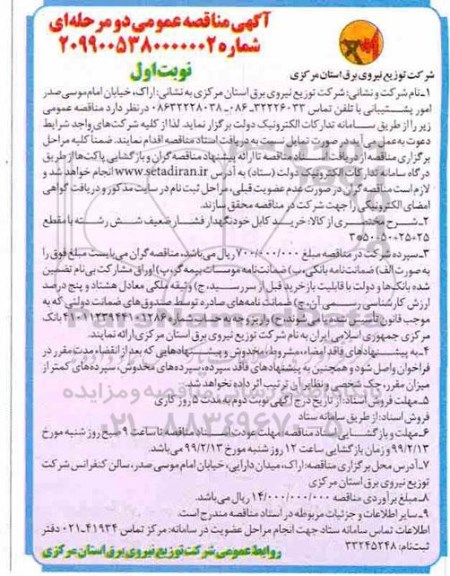 آگهی مناقصه عمومی دو مرحله‌ای
شماره ۲۰۹۹۰۰۵۳۸۰۰۰۰۰۰۲
نوبت اول
شرکت توزیع نیروی برق استان مرکزی
۱-نام شرکت و نشانی: شرکت توزیع نیروی برق استان مرکزی به نشانی: اراک، خیابان امام موسی صدر
امور پشتیبانی با تلفن تماس ۳۲۲۲۶۰۳۳-۰۸۶، ۰۸۶۳۲۲۲۸۰۳۸ در نظر دارد مناقصه عمومی
زیر را از طریق سامانه تدارکات الکترونیک دولت برگزار نماید. لذا از کلیه شرکت‌های واجد شرایط
دعوت به عمل می‌آید در صورت تمایل نسبت به دریافت اسناد مناقصه اقدام نمایند. ضمناً کلیه مراحل
برگزاری مناقصه از دریافت اسناد مناقصه تا ارائه پیشنهاد مناقصه گران و بازگشایی پاکت‌ها از طریق
درگاه سامانه تدارکات الکترونیک دولت (ستاد) به آدرس www.setadiran.ir انجام خواهد شد و
لازم است مناقصه گران در صورت عدم عضویت قبلی، مراحل ثبت نام در سایت مذکور و دریافت گواهی
امضای الکترونیکی را جهت شرکت در مناقصه محقق سازند.
۲-شرح مختصری از کالا: خرید کابل خودنگهدار فشار ضعیف شش رشته با مقطع
۳*۵۰+۵۰+۲۵+۲۵
۳-سپرده شرکت در مناقصه مبلغ ۷۰۰/۰۰۰/۰۰۰ ریال می‌باشد، مناقصه گران می‌بایست مبلغ فوق را
به صورت الف) ضمانت‌نامه بانکی، ب) ضمانت‌نامه موسسات بیمه گر، پ) اوراق مشارکت بی‌نام تضمین
شده بانک‌ها و دولت با قابلیت بازخرید قبل از سررسید، ج) وثیقه ملکی معادل هشتاد و پنج درصد
ارزش کارشناسی رسمی آن، چ) ضمانت نامه‌های صادره توسط صندوق‌های ضمانت دولتی که به
موجب قانون تأسیس می‌شوند،
مرکزی جمهوری اسلامی ایران به نام شرکت توزیع نیروی برق استان مرکزی ارائه نمایند.
۴-به پیشنهادهای فاقد امضاء، مشروط، مخدوش و پیشنهادهایی که بعد از انقضاء مدت مقرر در
فراخوان واصل شود و همچنین به پیشنهادهای فاقد سپرده، سپرده‌های مخدوش، سپرده‌های کمتر از
میزان مقرر، چک شخصی و نظایر آن ترتیب اثر داده نخواهد شد.
۵-مهلت فروش اسناد: از تاریخ درج آگهی نوبت دوم به مدت ۵ روز کاری
فروش اسناد: از طریق سامانه ستاد
۶-مهلت و بازگشایی اسناد مناقصه: مهلت عودت اسناد مناقصه تا ساعت ۹ صبح روز شنبه مورخ
۹۹/۲/۱۳ و زمان بازگشایی ساعت ۱۲ روز شنبه مورخ ۹۹/۲/۱۳ می‌باشد.
۷-آدرس محل برگزاری مناقصه: اراک، میدان دارایی، خیابان امام موسی صدر، سالن کنفرانس شرکت
توزیع نیروی برق استان مرکزی
۸-مبلغ برآوردی مناقصه ۱۴/۰۰۰/۰۰۰/۰۰۰ ریال می‌باشد.
۹-سایر اطلاعات و جزئیات مربوطه در اسناد مناقصه مندرج است.
اطلاعات تماس سامانه ستاد جهت انجام مراحل عضویت در سامانه: مرکز تماس ۴۱۹۳۴-۰۲۱ دفتر
ثبت‌نام: ۳۳۲۴۵۲۴۸
روابط عمومی شرکت توزیع نیروی برق استان مرکزی